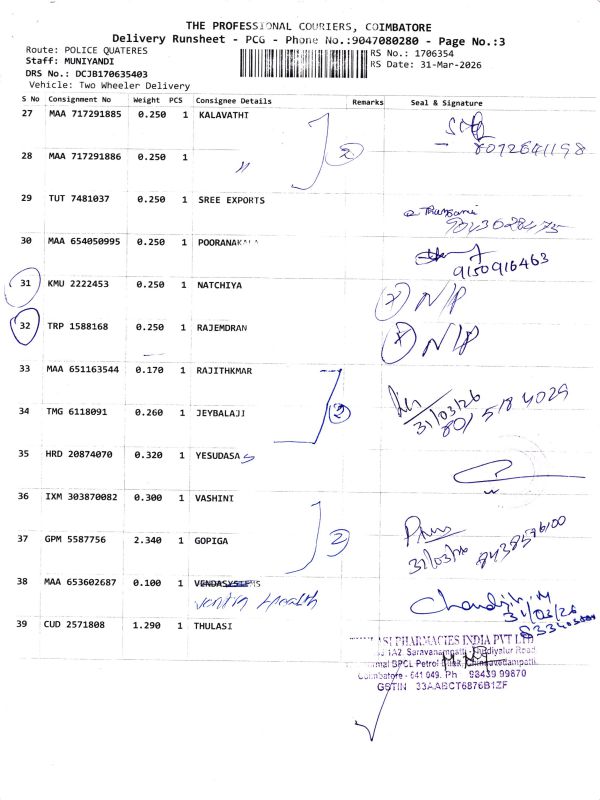 THE PROFESSIONAL COURIERS, COIMBATORE
Delivery Runsheet - PCG - Phone No.:9047080280 - Page No.:3
Route: POLICE QUATERES
RS No.: 1706354
Staff: MUNIYANDI
RS Date: 31-Mar-2026
DRS No.: DCJB170635403
Vehicle: Two Wheeler Delivery
S No Consignment No Weight PCS Consignee Details Remarks Seal & Signature
27 MAA 717291885 0.250 1 KALAVATHI
8072641198
28 MAA 717291886 0.250 1 〃 2
29 TUT 7481037 0.250 1 SREE EXPORTS
30 MAA 654050995 0.250 1 POORANAKALA
9150916463
31 KMU 2222453 0.250 1 NATCHIYA N/P
32 TRP 1588168 0.250 1 RAJEMDRAN N/P
33 MAA 651163544 0.170 1 RAJITHKMAR
31/03/26
34 TMG 6118091 0.260 1 JEYBALAJI 2
35 HRD 20874070 0.320 1 YESUDASAS
36 IXM 303870082 0.300 1 VASHINI
37 GPM 5587756 2.340 1 GOPIGA 2
31/03/26 8438576100
38 MAA 653602687 0.100 1 VENDASYSTEMS
Health
31/03/26
39 CUD 2571808 1.290 1 THULASI
PHARMACIES INDIA PVT LTD
1A2, Saravanampatti - Thudiyalur Road
BPCL Petrol Bunk, Chinnavedampatti
Coimbatore - 641 049. Ph 98439 99870
GSTIN 33AABCT6876B1ZF